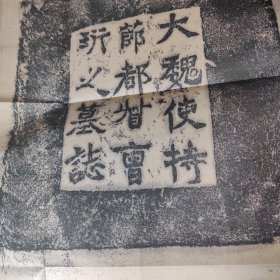 大魏使持
節都督曹
珎之墓誌